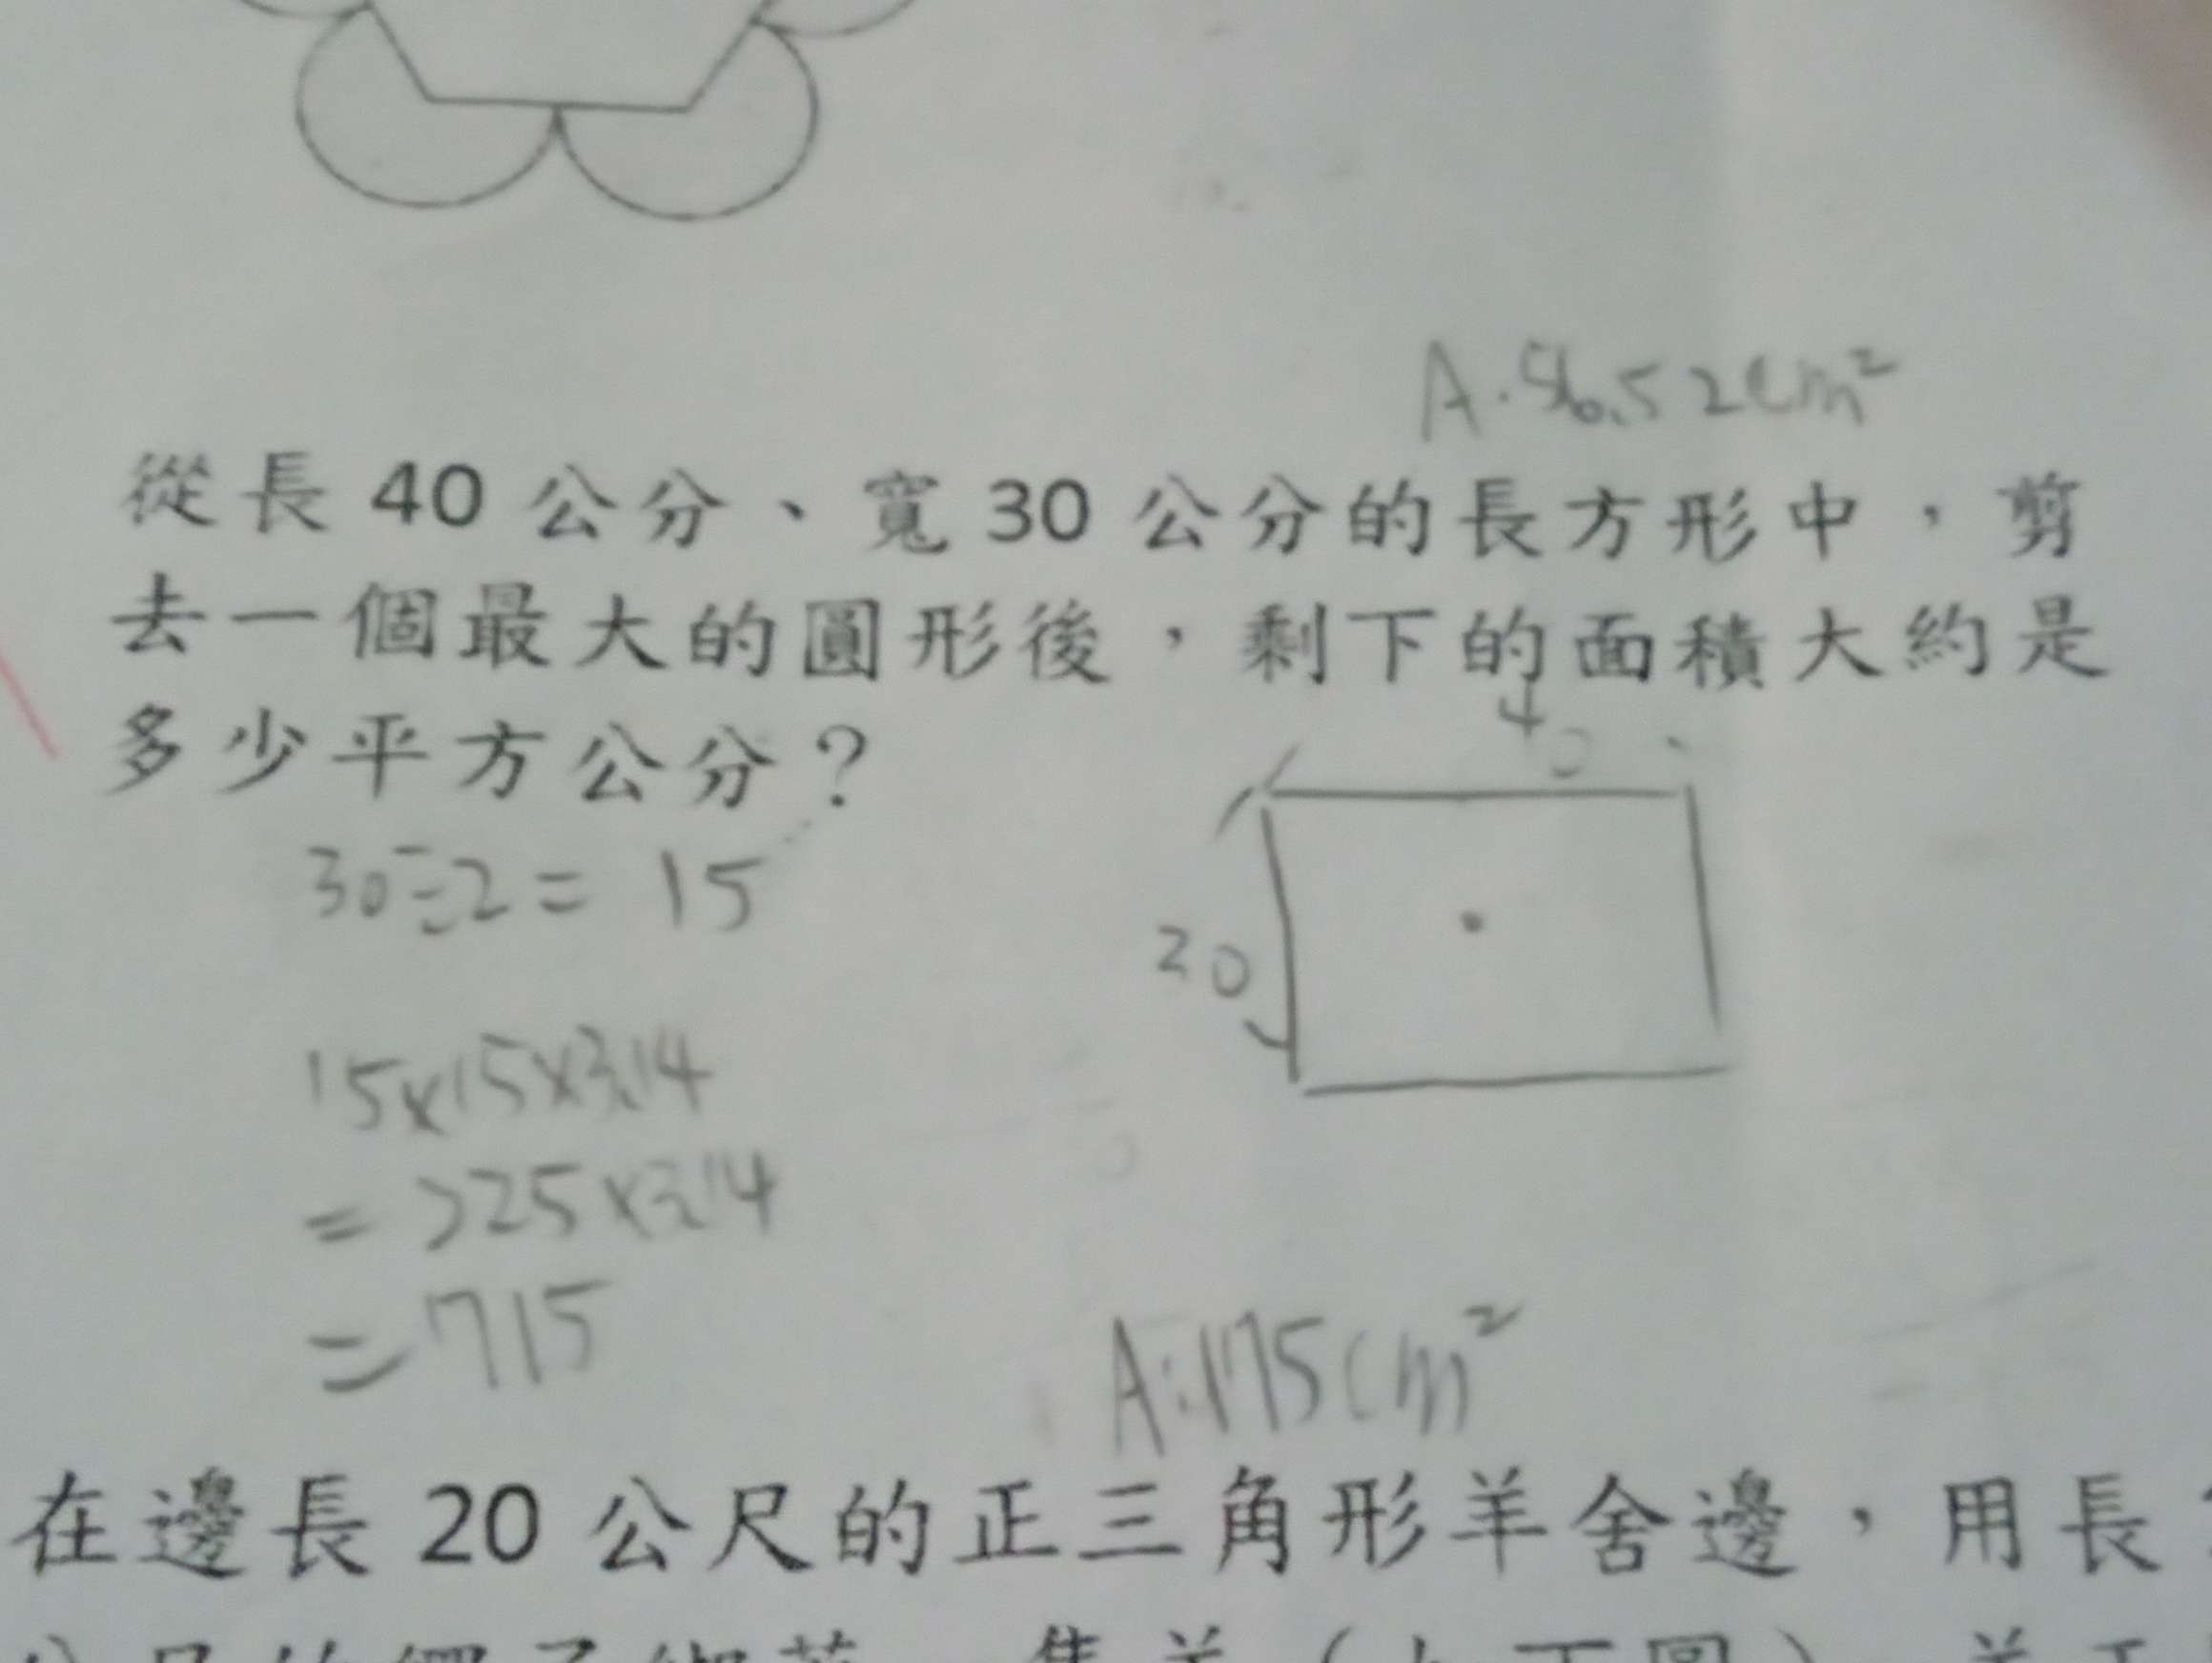 A.56.52cm²
從長 40 公分、寬 30 公分的長方形中，剪
去一個最大的圓形後，剩下的面積大約是
多少平方公分？
40
30÷2=15
30
15×15×3.14
=225×3.14
=715
A:175cm²
在邊長 20 公尺的正三角形羊舍邊，用長